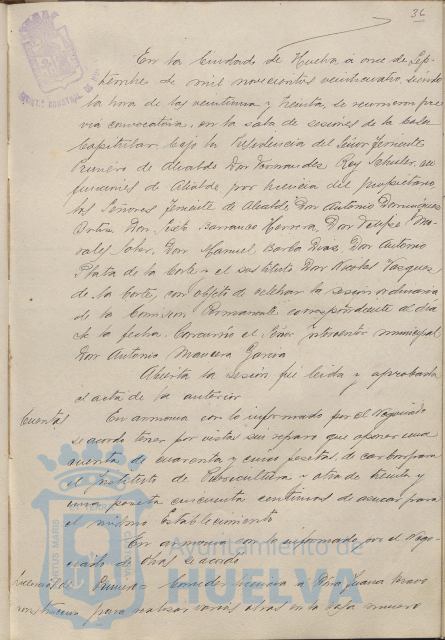 36
En la Ciudad de Huelva, a once de Sep-
tiembre de mil novecientos veinticuatro, siendo
la hora de las veintiuna y treinta, se reunieron pre-
via convocatoria, en la sala de sesiones de la Casa
Capitular bajo la Presidencia del Señor Teniente
Primero de Alcalde Don Rey en
funciones de Alcalde por licencia del propietario
los Señores Teniente de Alcalde, Don Antonio Dominguez
Don Sixto Barranco Herrera, Don Felipe Mo-
rales Don Manuel Barba Diaz, Don Antonio
Plata de la Corte y el sustituto Don Nicolas Vazquez
de la Corte, con objeto de celebrar la sesion ordinaria
de la Comision Permanente correspondiente al dia
de la fecha. Concurrió el Señor Interventor municipal
Don Antonio Mancera Garcia
Abierta la sesión fué leida y aprobada
el acta de la anterior
Cuentas En armonia con lo informado por el Negociado
se acordo tener por vistas sin reparo que oponer una
cuenta de cuarenta y cinco pesetas de carbon para
el Instituto de Puericultura y otra de treinta y
una peseta cincuenta centimos de azucar para
el mismo Establecimiento
En armonia con lo informado por el Nego-
ciado de Obras se acordo
Licencias de Primero= Conceder licencia a Doña Juana Bravo
construccion para realizar varias obras en la casa numero
Ayuntamiento de
HUELVA